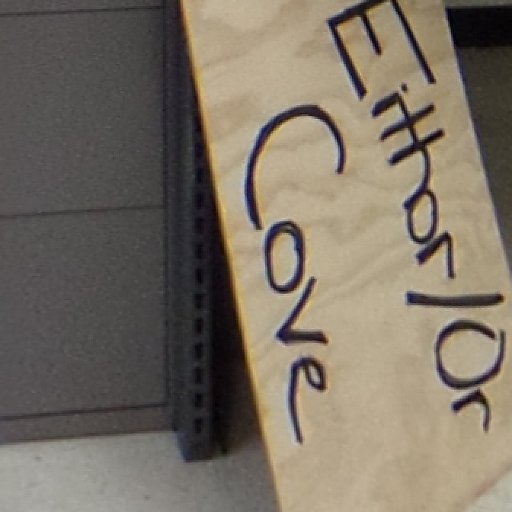 Eithor/Or
Cove